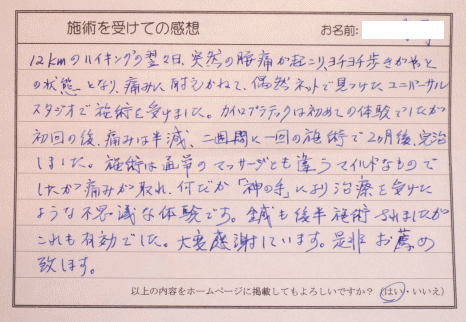 施術を受けての感想 お名前:
12kmのハイキングの翌々日、突然の腰痛が起こり、ヨチヨチ歩きがやっと
の状態となり、痛みに耐えかねて、偶然ネットで見つけたユニバーサル
スタジオで施術を受けました。カイロプラクティックは初めての体験でしたが
初回の後、痛みは半減、二週間に一回の施術で2ヵ月後、完治
しました。施術は通常のマッサージとも違うマイルドなもので
したが痛みが取れ、何だか「神の手」により治療を受けた
ような不思議な体験です。鍼も後半施術されましたが
これも有効でした。大変感謝しています。是非お薦め
致します。
以上の内容をホームページに掲載してもよろしいですか?(はい・いいえ)